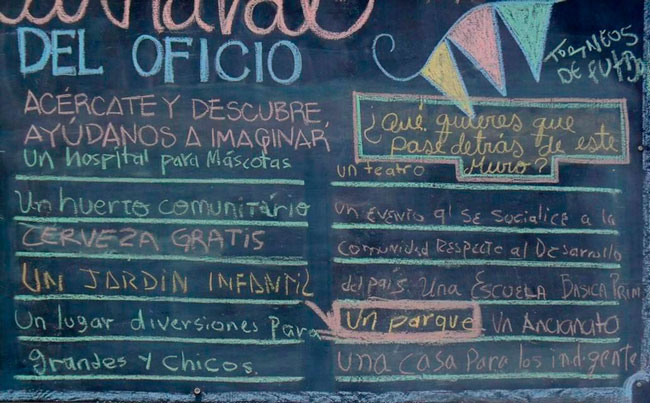 Carnaval
DEL OFICIO
ACÉRCATE Y DESCUBRE,
AYÚDANOS A IMAGINAR
Un hospital para Máscotas
Un huerto comunitário
CERVEZA GRATIS
UN JARDIN INFANTIL
Un lugar diversiones Para
grandes y chicos.
TORNEOS
DE FUTBOL
¿Qué quieres que
pase detrás de este
Muro?
un teatro
un evento q' se socialice a la
comunidad Respecte al Desarrollo
del país. Una Escuela Basica Prim
un parque Un Ancianato
una casa Para los indigente